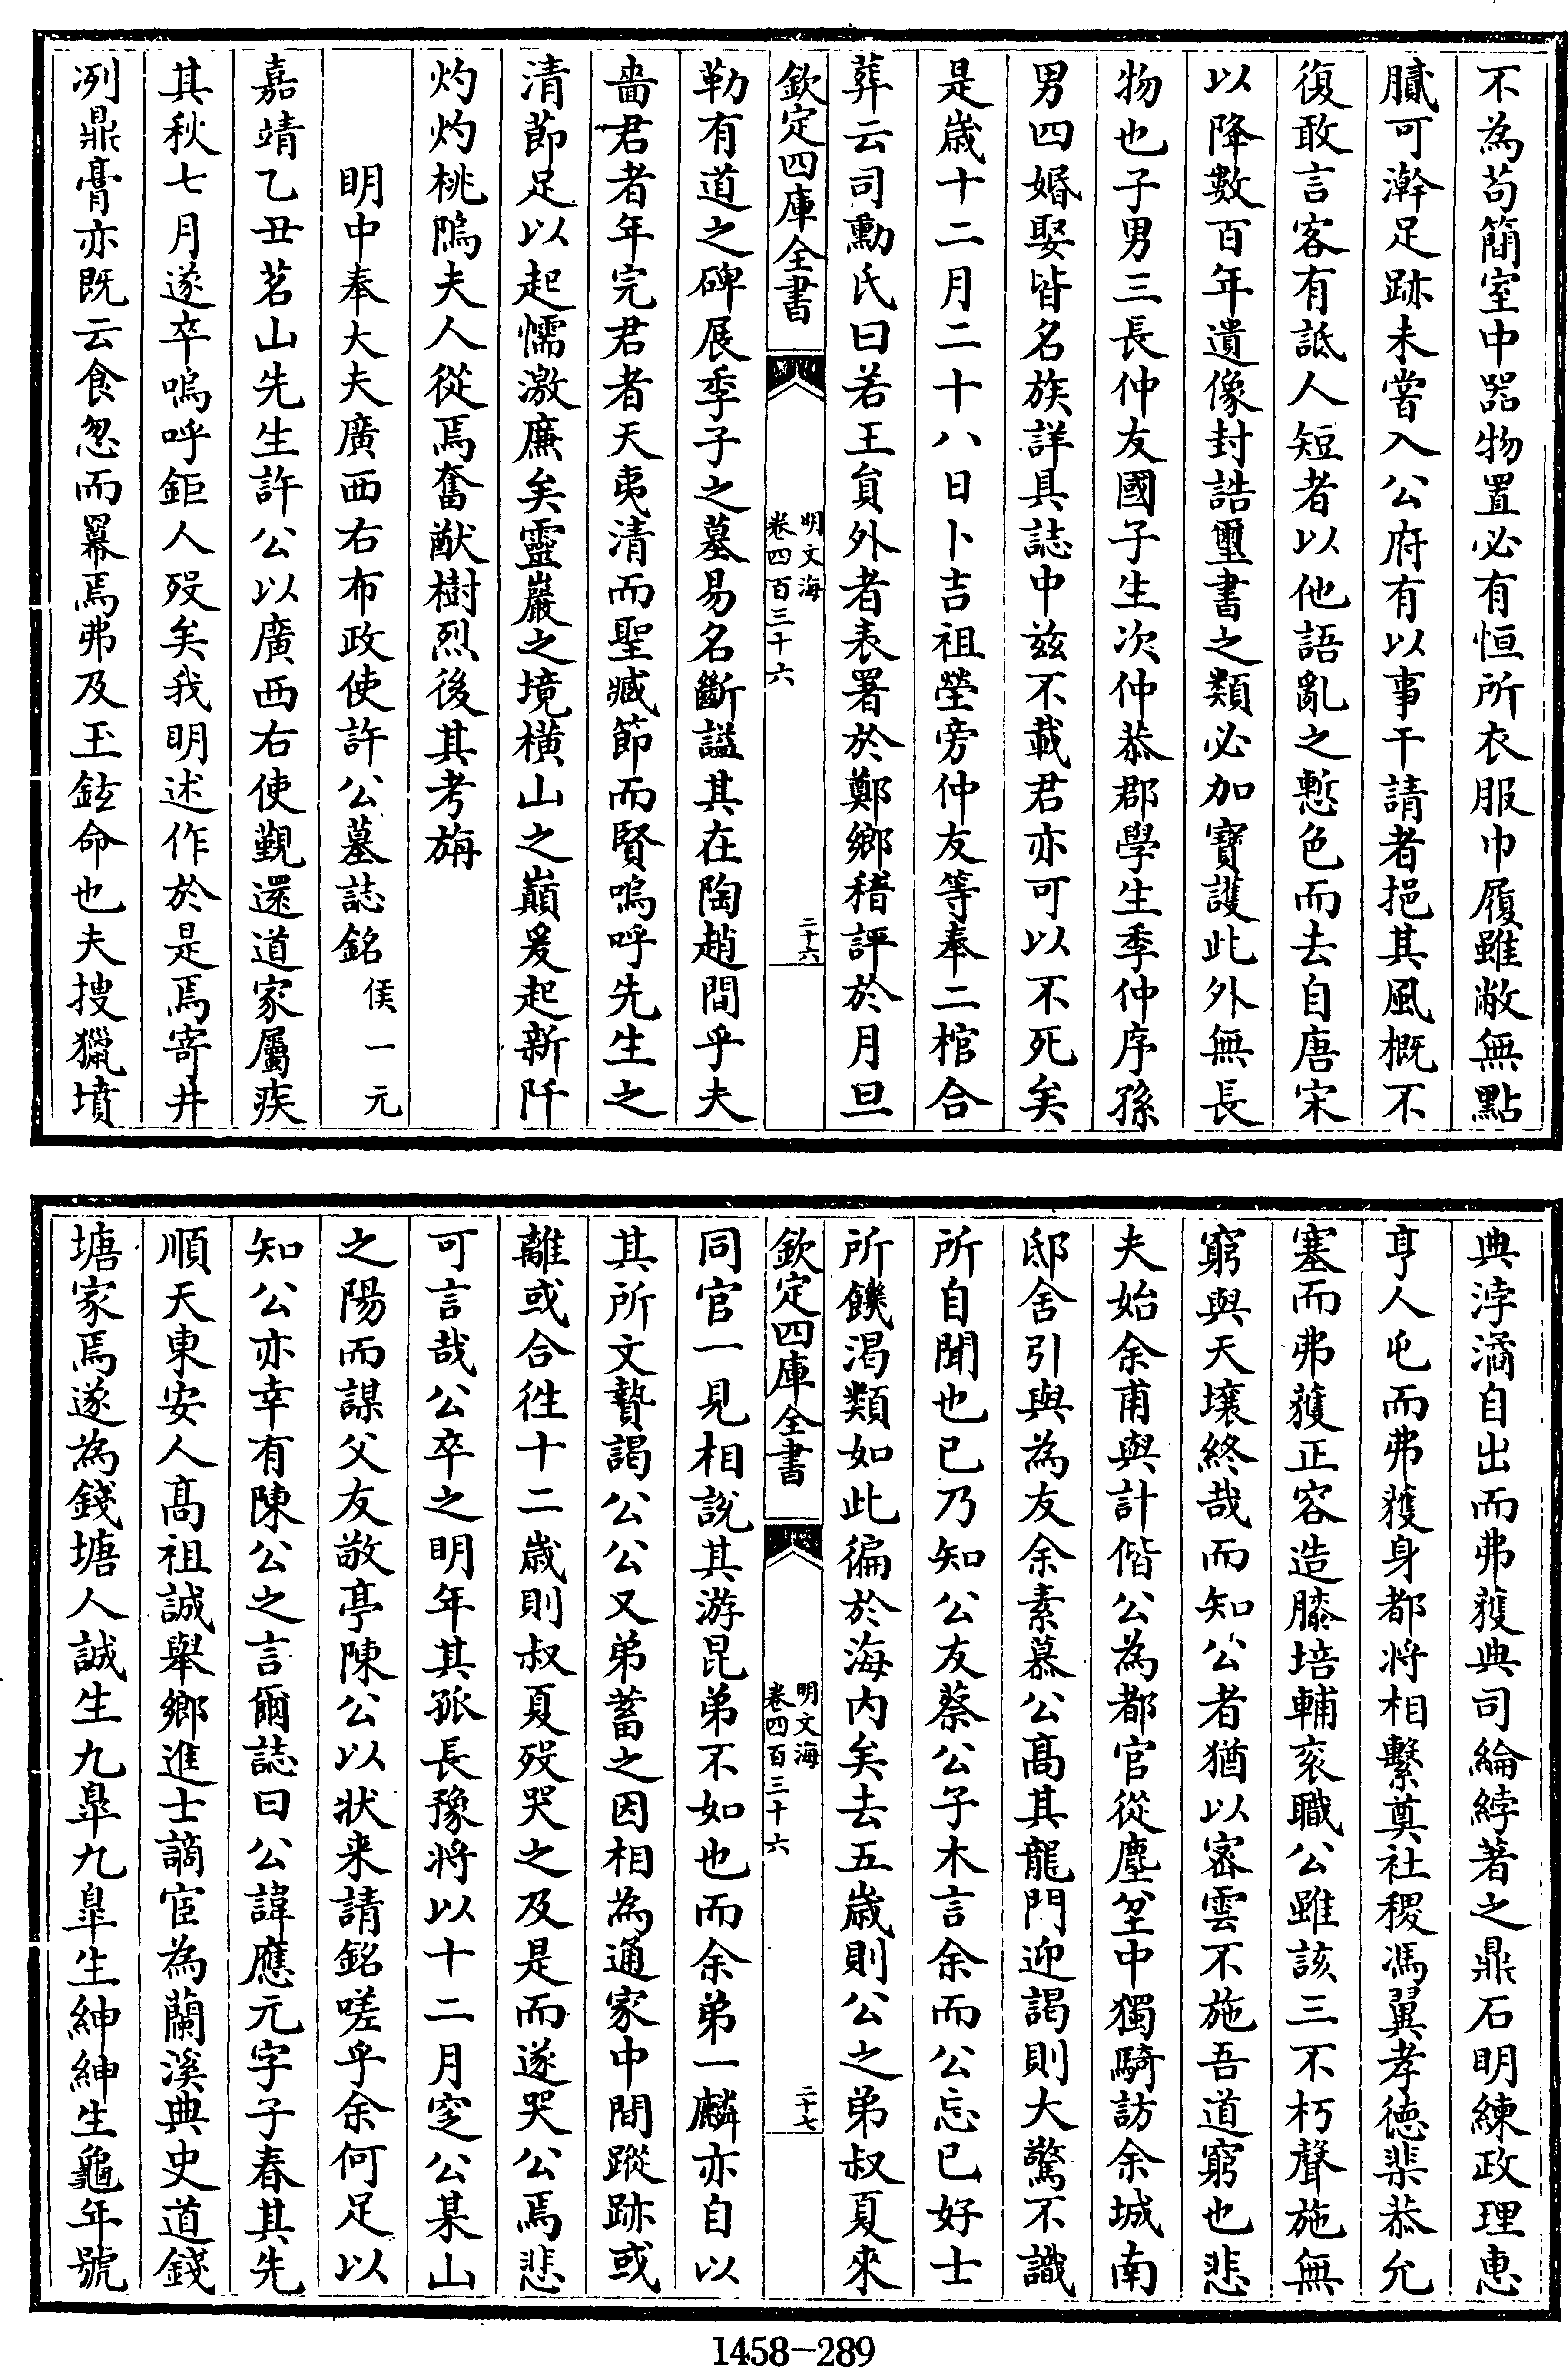 不為苟簡室中器物置必有恒所衣服巾履雖敝無點
膩可澣足跡未嘗入公府有以事干請者挹其風概不
復敢言客有詆人短者以他語亂之慙色而去自唐宋
以降數百年遺像封誥璽書之類必加寶護此外無長
物也子男三長仲友國子生次仲恭郡學生季仲序孫
男四婚娶皆名族詳具誌中兹不載君亦可以不死矣
是歲十二月二十八日卜吉祖塋旁仲友等奉二棺合
葬云司勳氏曰若王員外者表署於鄭鄉稽評於月旦
欽定四庫全書
明文海
卷四百三十六
二十六
勒有道之碑展季子之墓易名斷諡其在陶趙間乎夫
嗇君者年完君者天夷清而聖臧節而賢嗚呼先生之
清節足以起懦激廉矣靈巖之境橫山之巔爰起新阡
灼灼桃隝夫人從焉奮猷樹烈後其考旃
明中奉大夫廣西右布政使許公墓誌銘 侯一元
嘉靖乙丑茗山先生許公以廣西右使覲還道家屬疾
其秋七月遂卒嗚呼鉅人歿矣我明述作於是焉寄井
洌鼎膏亦既云食忽而羃焉弗及玉鉉命也夫搜獵墳
典浡潏自出而弗獲典司綸綍著之鼎石明練政理惠
亨人屯而弗獲身都將相繫奠社稷馮翼孝德棐恭允
塞而弗獲正容造膝培輔袞職公雖該三不朽聲施無
窮與天壤終哉而知公者猶以密雲不施吾道窮也悲
夫始余甫與計偕公為都官從塵坌中獨騎訪余城南
邸舍引與為友余素慕公髙其龍門迎謁則大驚不識
所自聞也已乃知公友蔡公子木言余而公忘已好士
所饑渴類如此徧於海内矣去五歲則公之弟叔夏來
欽定四庫全書
明文海
卷四百三十六
二十七
同官一見相說其游昆弟不如也而余弟一麟亦自以
其所文贄謁公公又弟蓄之因相為通家中間蹤跡或
離或合徃十二歲則叔夏歿哭之及是而遂哭公焉悲
可言哉公卒之明年其孤長豫將以十二月窆公某山
之陽而謀父友敬亭陳公以狀来請銘嗟乎余何足以
知公亦幸有陳公之言爾誌曰公諱應元字子春其先
順天東安人髙祖誠舉鄉進士謫宦為蘭溪典史道錢
塘家焉遂為錢塘人誠生九臯九臯生紳紳生龜年號
1458-289